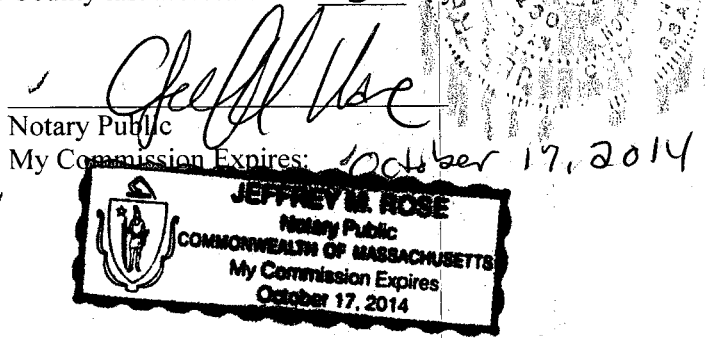 County
Notary Public
My Commission Expires: October 17, 2014
JEFFREY M. ROSE
Notary Public
COMMONWEALTH OF MASSACHUSETTS
My Commission Expires
October 17, 2014